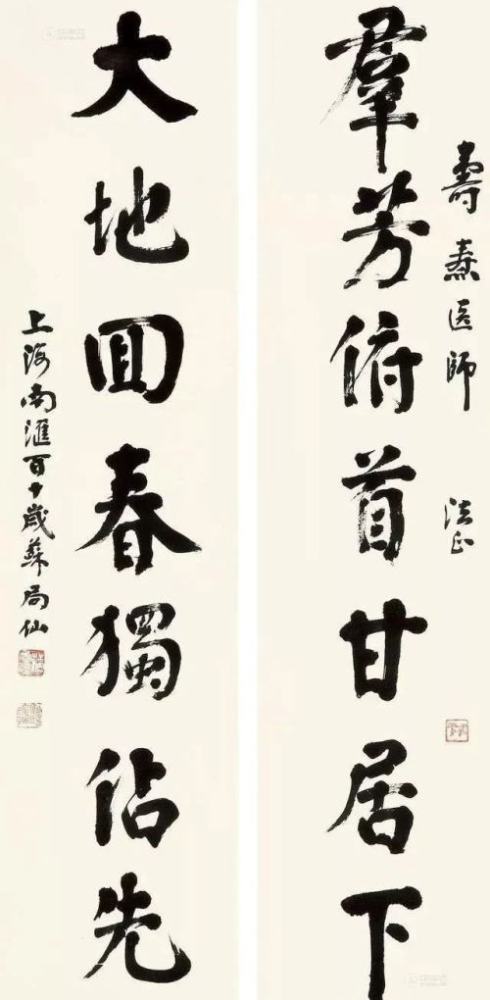 壽
医師
法正
羣芳俯首甘居下
大地回春獨佔先
上海南滙百十歲蘇局仙